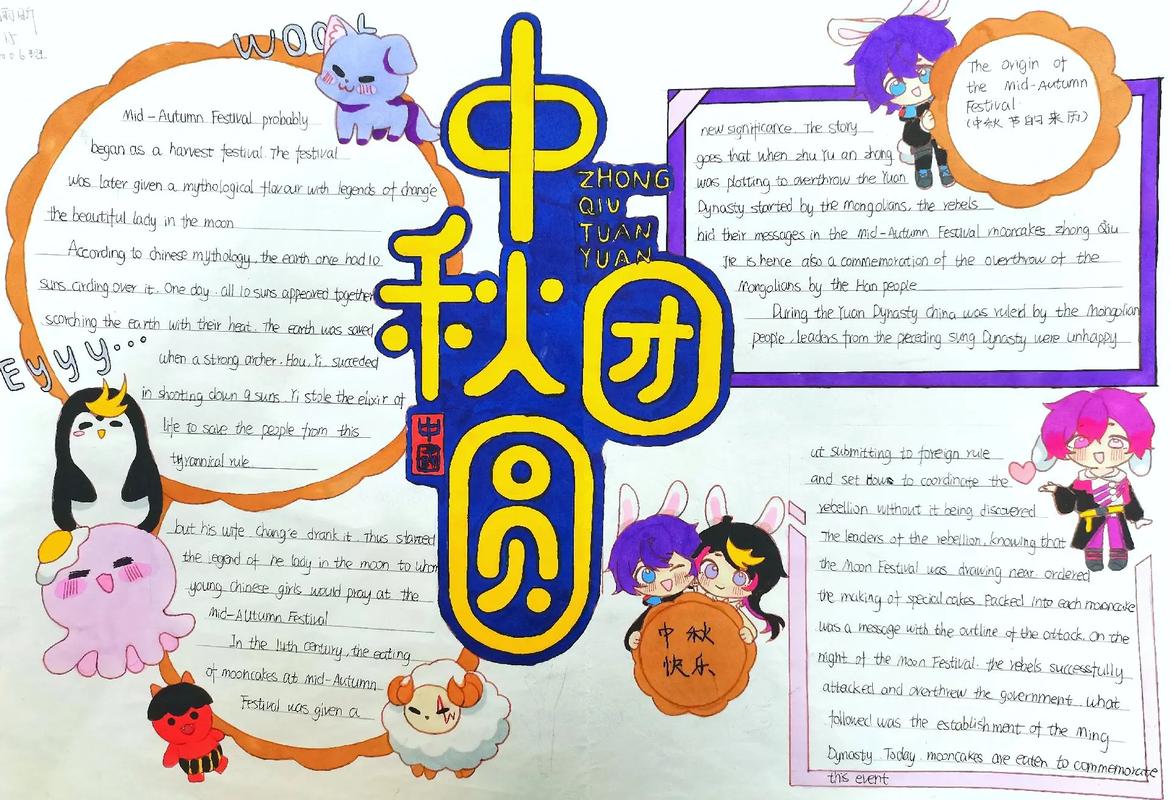 WOOL
Mid-Autumn Festival probably
began as a harvest festival. The festival
was later given a mythological flavour with legends of chang'e
the beautiful lady in the moon
According to chinese mythology, the earth once had 10
suns circling over it. One day. all 10 suns appeared together
scorching the earth with their heat. The earth was saved
when a strong archer. Hou, Yi, succeeded
in shooting down 9 suns. Yi stole the elixir of
life to save the people from this
tyrannical rule
Eyyy...
but his wife chang'e drank it. Thus started
the legend of he lady in the moon to whom
young chinese girls would pray at the
mid-AUtumn Festival
In the 14th century, the eating
of mooncakes at mid-Autumn
Festival was given a
中秋团圆
ZHONG
QIU
TUAN
YUAN
中國
The Origin of
the Mid-Autumn
Festival
(中秋节的来历)
new significance. The story
goes that when zhu Yu an zhang
was plotting to overthrow the Yuan
Dynasty started by the Mongolians, the rebels
hid their messages in the Mid-Autumn Festival mooncakes zhong Qiu
Jie is hence also a commemoration of the overthrow of the
Mongolians by the Han people
During the Yuan Dynasty China was ruled by the Mongolian
people. leaders from the preceding sung Dynasty were unhappy
at submitting to foreign rule
and set how to coordinate the
rebellion without it being discovered
The leaders of the rebellion, knowing that
the Moon Festival was drawing near ordered
the making of special cakes. Packed into each mooncake
was a message with the outline of the attack. On the
night of the Moon Festival. the rebels successfully
attacked and overthrew the government. what
followed was the establishment of the Ming
Dynasty. Today. mooncakes are eaten to commemorate
this event
中秋
快乐